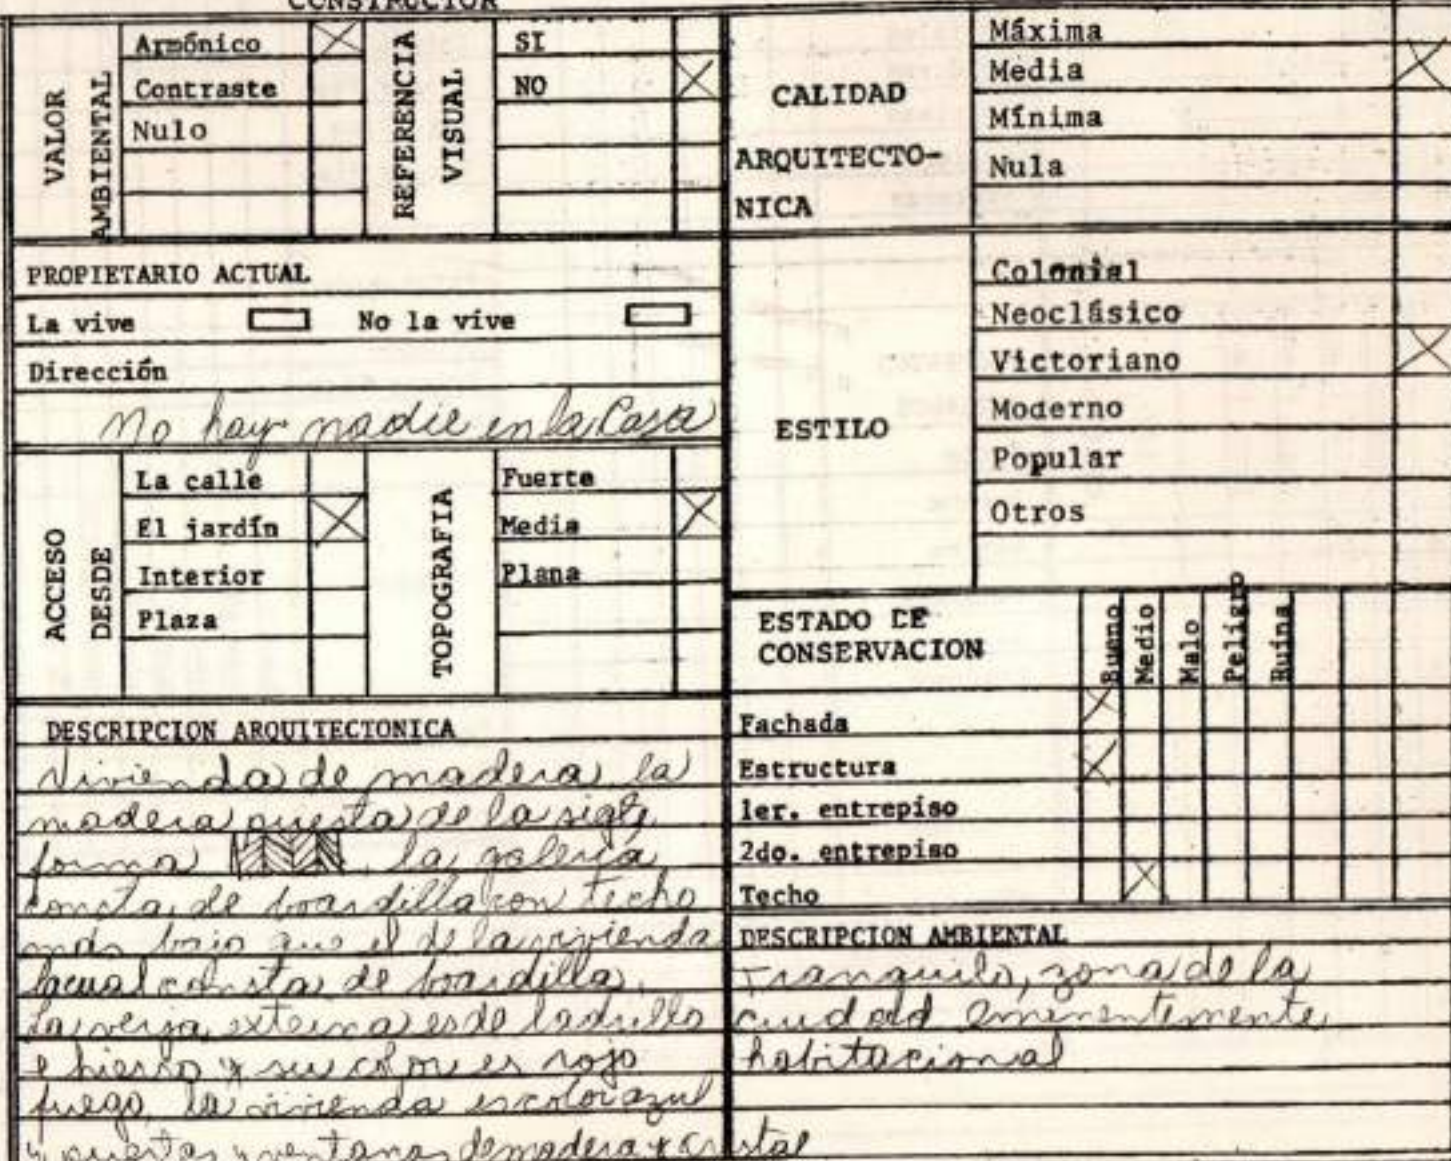 CONSTRUCTOR
VALOR AMBIENTAL
Armónico
Contraste
Nulo
REFERENCIA VISUAL
SI
NO
CALIDAD
ARQUITECTO-
NICA
Máxima
Media
Mínima
Nula
PROPIETARIO ACTUAL
La vive No la vive
Dirección
No hay nadie en la Casa
ACCESO DESDE
La calle
El jardín
Interior
Plaza
TOPOGRAFIA
Fuerte
Media
Plana
ESTILO
Colonial
Neoclásico
Victoriano
Moderno
Popular
Otros
ESTADO DE
CONSERVACION
Bueno
Medio
Malo
Peligro
Ruina
Fachada
Estructura
1er. entrepiso
2do. entrepiso
Techo
DESCRIPCION ARQUITECTONICA
Vivienda de madera la
madera puesta de la sigte
forma la galeria
consta de boardilla con techo
mas bajo que el de la vivienda
lacual consta de boardilla.
La verja externa es de ladrillo
e hierro y su color es rojo
fuego, la vivienda es color azul
y puertas y ventanas de madera y cristal
DESCRIPCION AMBIENTAL
Tranquilo, zona de la
ciudad eminentemente
habitacional